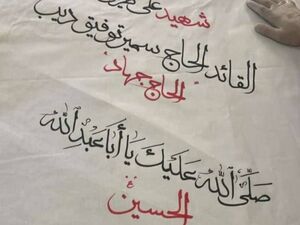 شهيد على
القائد الحاج سمير توفيق ديب
الحاج جهاد
صَلَّى اللهُ عَلَيْكَ يَا أَبَا عَبْدِ اللهِ
الحسين